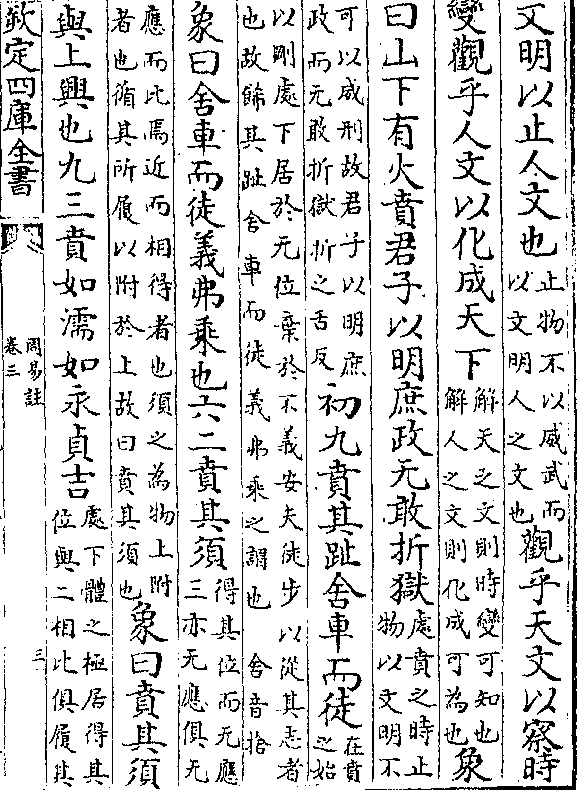 文明以止人文也止物不以威武而以文明人之文也觀乎天文以察時
變觀乎人文以化成天下解天之文則時變可知也解人之文則化成可為也象
曰山下有火賁君子以明庶政无敢折獄處賁之時止物以文明不
可以威刑故君子以明庶政而无敢折獄折之舌反初九賁其趾舍車而徒在賁之始
以剛處下居於无位棄於不義安夫徒步以從其志者也故飾其趾舍車而徒義弗乘之謂也舍音捨
象曰舍車而徒義弗乘也六二賁其須得其位而无應三亦无應俱无
應而比焉近而相得者也須之為物上附者也循其所履以附於上故曰賁其須也象曰賁其須
與上興也九三賁如濡如永貞吉處下體之極居得其位與二相比俱履其
欽定四庫全書
周易註
卷三
三